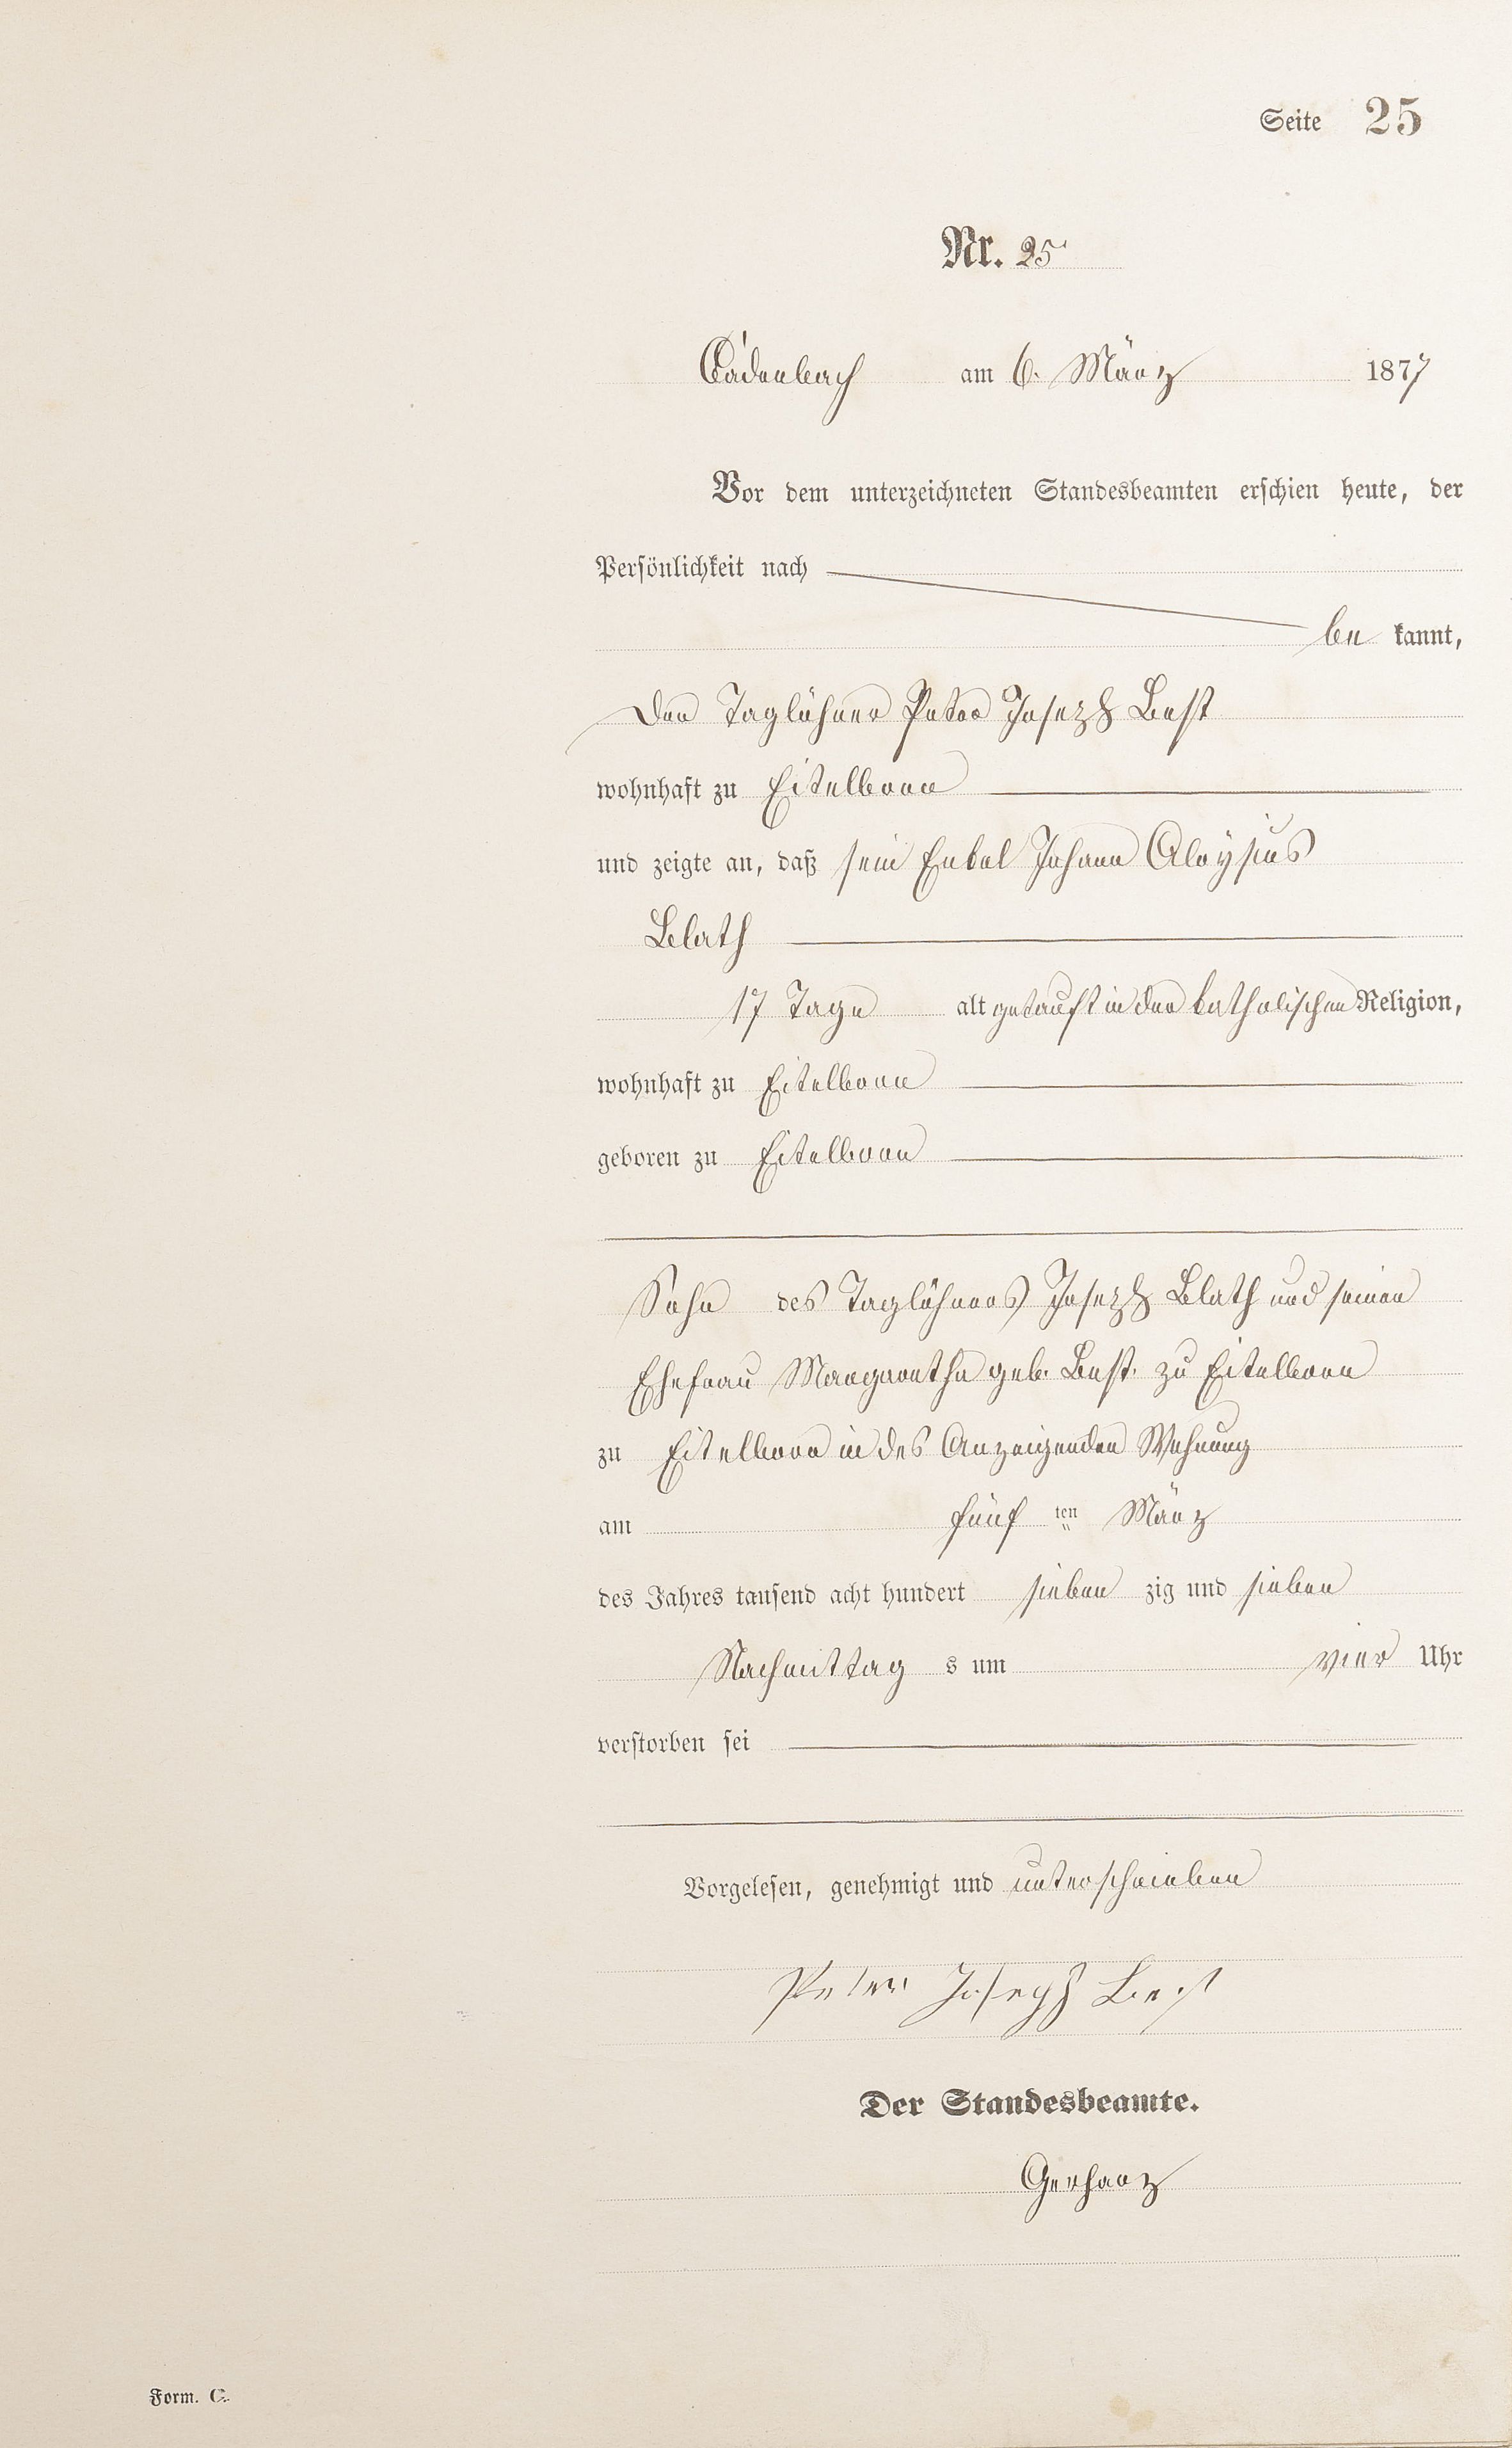 Seite 25
Nr. 25
Cadenbach am 6. März 1877
Vor dem unterzeichneten Standesbeamten erschien heute, der
Persönlichkeit nach
be kannt,
der Taglöhner Peter Joseph Best
wohnhaft zu Eitelborn
und zeigte an, daß sein Enkel Johann Aloysius
Blath
17 Tage alt getauft in der katholischen Religion,
wohnhaft zu Eitelborn
geboren zu Eitelborn
Sohn des Taglöhners Joseph Blath und seiner
Ehefrau Margaretha geb. Best. zu Eitelborn
zu Eitelborn in des Anzeigenden Wohnung
am fünf ten März
des Jahres tausend acht hundert sieben zig und sieben
Nachmittag s um vier Uhr
verstorben sei
Vorgelesen, genehmigt und unterschrieben
Peter Joseph Best
Der Standesbeamte.
Gerharz
Form. C.